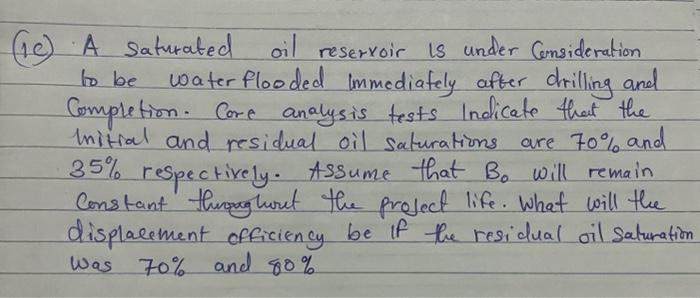 (1c) A Saturated oil reservoir is under Consideration
to be water flooded Immediately after drilling and
Completion. Core analysis tests Indicate that the
Initial and residual oil Saturations are 70% and
35% respectively. Assume that Bo will remain
Constant throughout the project life. What will the
displacement efficiency be if the residual oil Saturation
was 70% and 80%